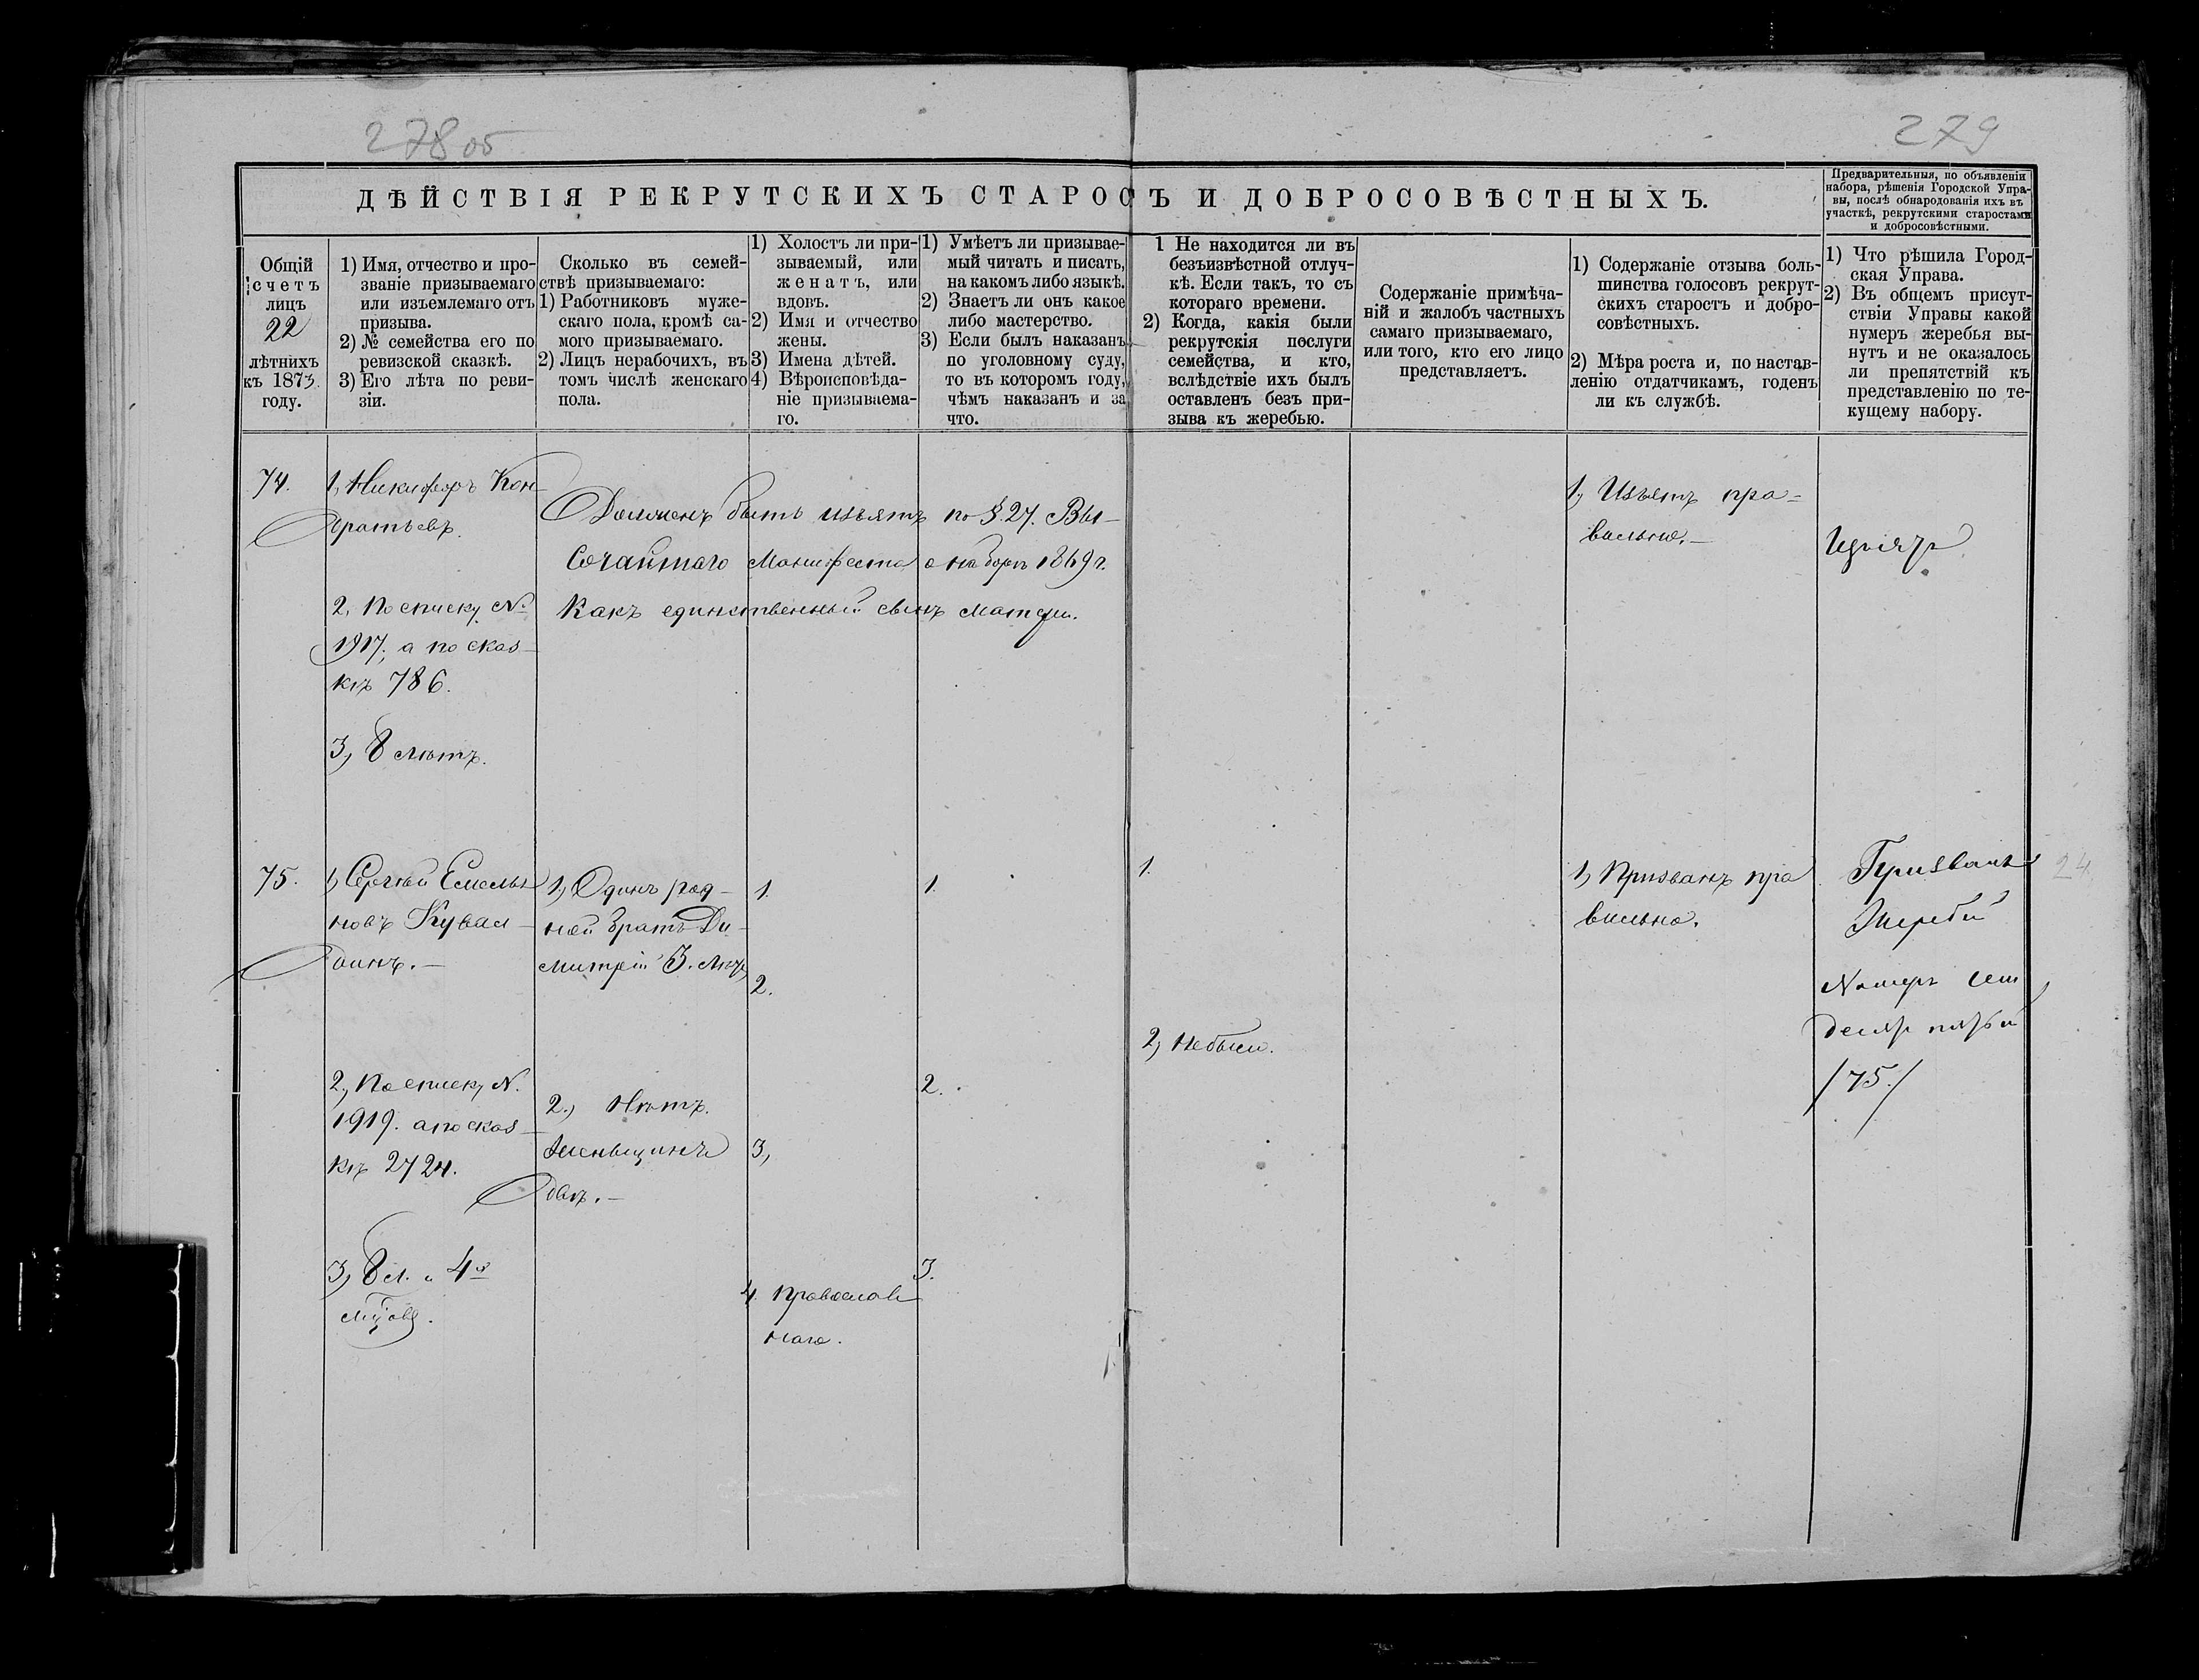 278 об
279
ДѢЙСТВІЯ РЕКРУТСКИХЪ СТАРОСЪ И ДОБРОСОВѢСТНЫХЪ.
Предварительныя, по объявленіи
набора, рѣшенія Городской Упра-
вы, послѣ обнародованія ихъ въ
участкѣ, рекрутскими старостами
и добросовѣстными.
Общій
счетъ
лицъ
22
лѣтнихъ
къ 1873.
году.
1) Имя, отчество и про-
званіе призываемаго
или изъемлемаго отъ
призыва.
2) № семейства его по
ревизской сказкѣ.
3) Его лѣта по реви-
зіи.
Сколько въ семей-
ствѣ призываемаго:
1) Работниковъ муже-
скаго пола, кромѣ са-
мого призываемаго.
2) Лицъ нерабочихъ, въ
томъ числѣ женскаго
пола.
1) Холостъ ли при-
зываемый, или
женатъ, или
вдовъ.
2) Имя и отчество
жены.
3) Имена дѣтей.
4) Вѣроисповѣда-
ніе призываема-
го.
1) Умѣетъ ли призывае-
мый читать и писать,
на какомъ либо языкѣ.
2) Знаетъ ли онъ какое
либо мастерство.
3) Если былъ наказанъ
по уголовному суду,
то въ которомъ году,
чѣмъ наказанъ и за
что.
1 Не находится ли въ
безъизвѣстной отлуч-
кѣ. Если такъ, то съ
котораго времени.
2) Когда, какія были
рекрутскія послуги
семейства, и кто,
вслѣдствіе ихъ былъ
оставленъ безъ при-
зыва къ жеребью.
Содержаніе примѣча-
ній и жалобъ частныхъ
самаго призываемаго,
или того, кто его лицо
представляетъ.
1) Содержаніе отзыва боль-
шинства голосовъ рекрут-
скихъ старостъ и добро-
совѣстныхъ.
2) Мѣра роста и, по настав-
ленію отдатчикамъ, годенъ
ли къ службѣ.
1) Что рѣшила Город-
ская Управа.
2) Въ общемъ присут-
ствіи Управы какой
нумеръ жеребья вы-
нутъ и не оказалось
ли препятствій къ
представленію по те-
кущему набору.
74.
1, Никифоръ Кон-
дратьевъ.
2, По списку №
1917; а по сказ-
кѣ 786.
3, 8 лѣтъ.
Долженъ быть изъятъ по §.27. Вы-
сочайшаго Манифеста о наборѣ 1869 г.
Какъ единственный сынъ матери.
1, Изъятъ пра-
вильно.—
Изъятъ
75.
1, Сергѣй Емелья
новъ Кувал-
динъ.—
2, По списку №.
1919. а по сказ-
кѣ 2724.
3, 8 л. и 4х
мѣсяцовъ.
1, Одинъ род-
ной братъ Ди-
митрій 3. лѣтъ
2., Нѣтъ.
Женщинъ
двѣ.—
1.
2.
3,
4. Православ
наго.
1.
2.
3.
1.
2, Не были.
1, Призванъ пра
вильно.
Призванъ
Жеребій
Номеръ сем
десятъ пятый
/75./
24